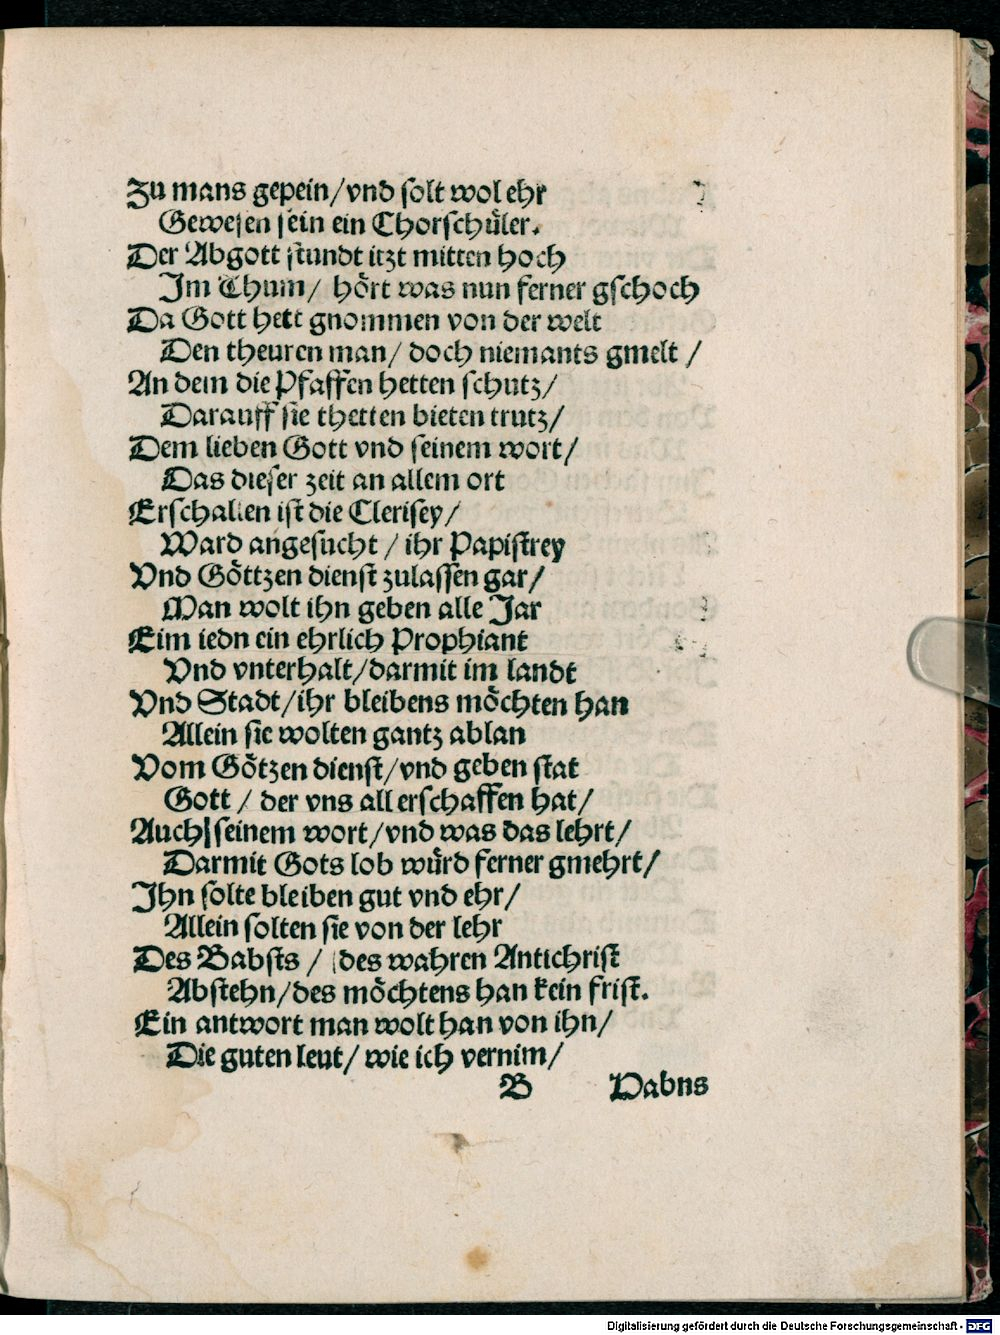 Zu mans gepein/vnd solt wol ehr
Gewesen sein ein Chorschüler.
Der Abgott stundt itzt mitten hoch
Im Thum/ hört was nun ferner gschoch
Da Gott hett gnommen von der welt
Den theuren man/ doch niemants gmelt/
An dem die Pfaffen hetten schutz/
Darauff sie thetten bieten trutz/
Dem lieben Gott vnd seinem wort/
Das dieser zeit an allem ort
Erschallen ist die Clerisey/
Ward angesucht/ ihr Papistrey
Vnd Göttzen dienst zulassen gar/
Man wolt ihn geben alle Jar
Eim iedn ein ehrlich Prophiant
Vnd vnterhalt/darmit im landt
Vnd Stadt/ihr bleibens möchten han
Allein sie wolten gantz ablan
Vom Götzen dienst/vnd geben stat
Gott/ der vns all erschaffen hat/
Auch seinem wort/vnd was das lehrt/
Darmit Gots lob würd ferner gmehrt/
Ihn solte bleiben gut vnd ehr/
Allein solten sie von der lehr
Des Babsts/ des wahren Antichrist
Abstehn/des möchtens han kein frist.
Ein antwort man wolt han von ihn/
Die guten leut/ wie ich vernim/
B Habns
Digitalisierung gefördert durch die Deutsche Forschungsgemeinschaft - DFG